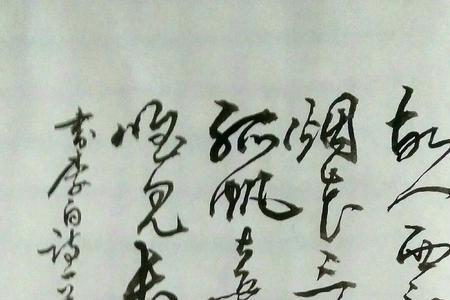 故人西
烟花三
孤帆远
唯见长
書李白诗一